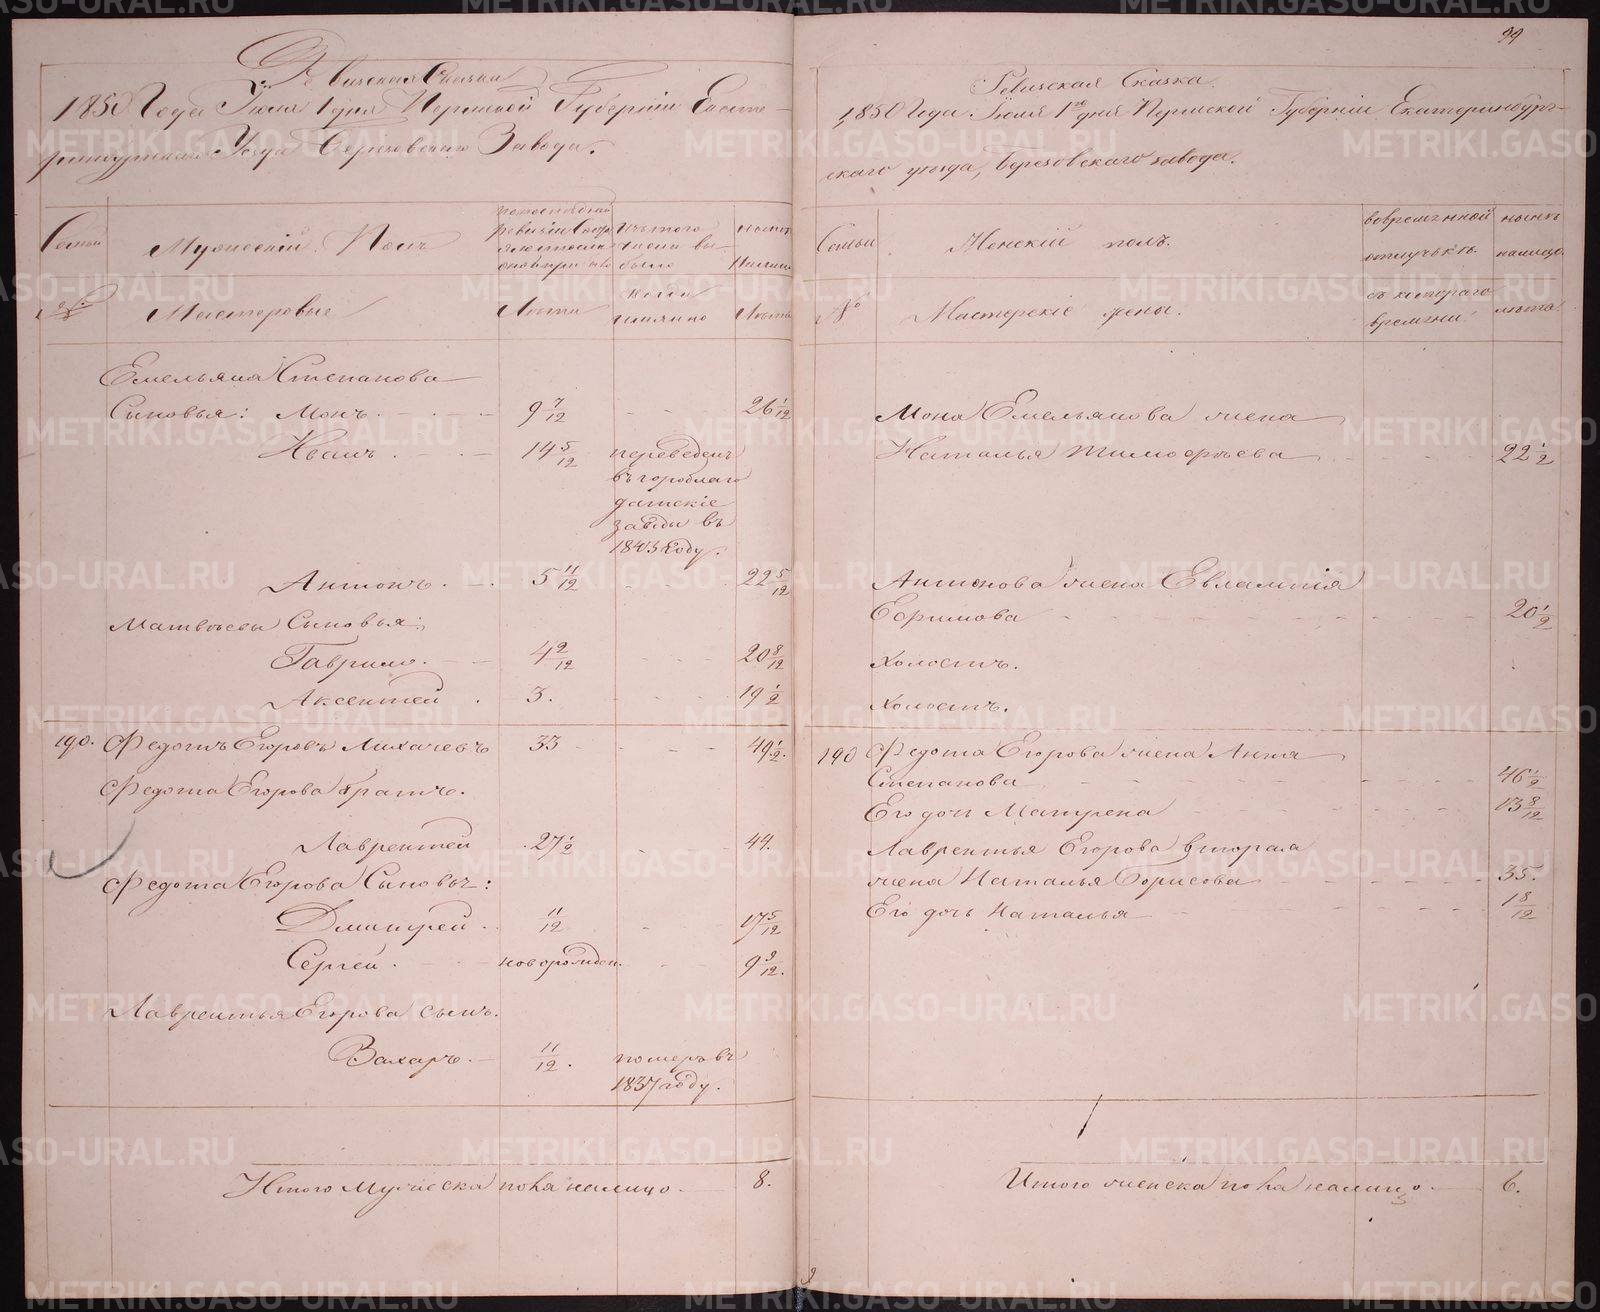 99
Ревизская Сказка
1850 Года Іюля 1 дня Пермской Губерніи Екате-
ринбургскаго Уезда Березовского Завода.
Семьи
Мужескій Полъ
по последней ревизіи
изъ того числа выбыло
ныне налицо
№
Мастеровые
Лета
когда имянно
Лета
Емельяна Степанова
Сыновья: Монъ. 9 7/12 26 1/12
Иванъ. 14 5/12 переведенъ
въ гороблаго
датскіе
заводы въ
1843 году.
Антонъ. 5 11/12 22 5/12
Матвеевы Сыновья:
Гаврило. 4 2/12 20 8/12
Аксентей. 3. 19 1/2
190. Федотъ Егоровъ Лихачевъ 33 49 1/2.
Федота Егорова братъ.
Лаврентей 27 1/2 44.
Федота Егорова Сыновья:
Дмитрей. 11/12 17 5/12
Сергей. новорожден. 9 9/12.
Лаврентья Егорова сынъ.
Захаръ. 11/12. померъ въ
1837 году.
Итого Мужеска пола налицо 8.
Ревизская Сказка.
1850 Года Іюля 1го дня Пермской Губерніи Екатеринбург-
скаго уезда, Березовскаго завода.
Семьи
Женскій полъ.
во временной отлучке
ныне налицо.
№
Мастерскіе жены.
съ котораго времени.
лета.
Мона Емельянова жена
Наталья Тимофеева 22 1/2
Антонова жена Евлампія
Ефимова 20 1/2
Холостъ.
Холостъ.
190 Федота Егорова жена Анна
Степанова 46 1/2
Его дочь Матрена 13 8/12
Лаврентья Егорова вторая
жена Наталья Борисова 35.
Его дочь Наталья 1 8/12
Итого женска пола налицо. 6.
METRIKI.GASO-URAL.RU